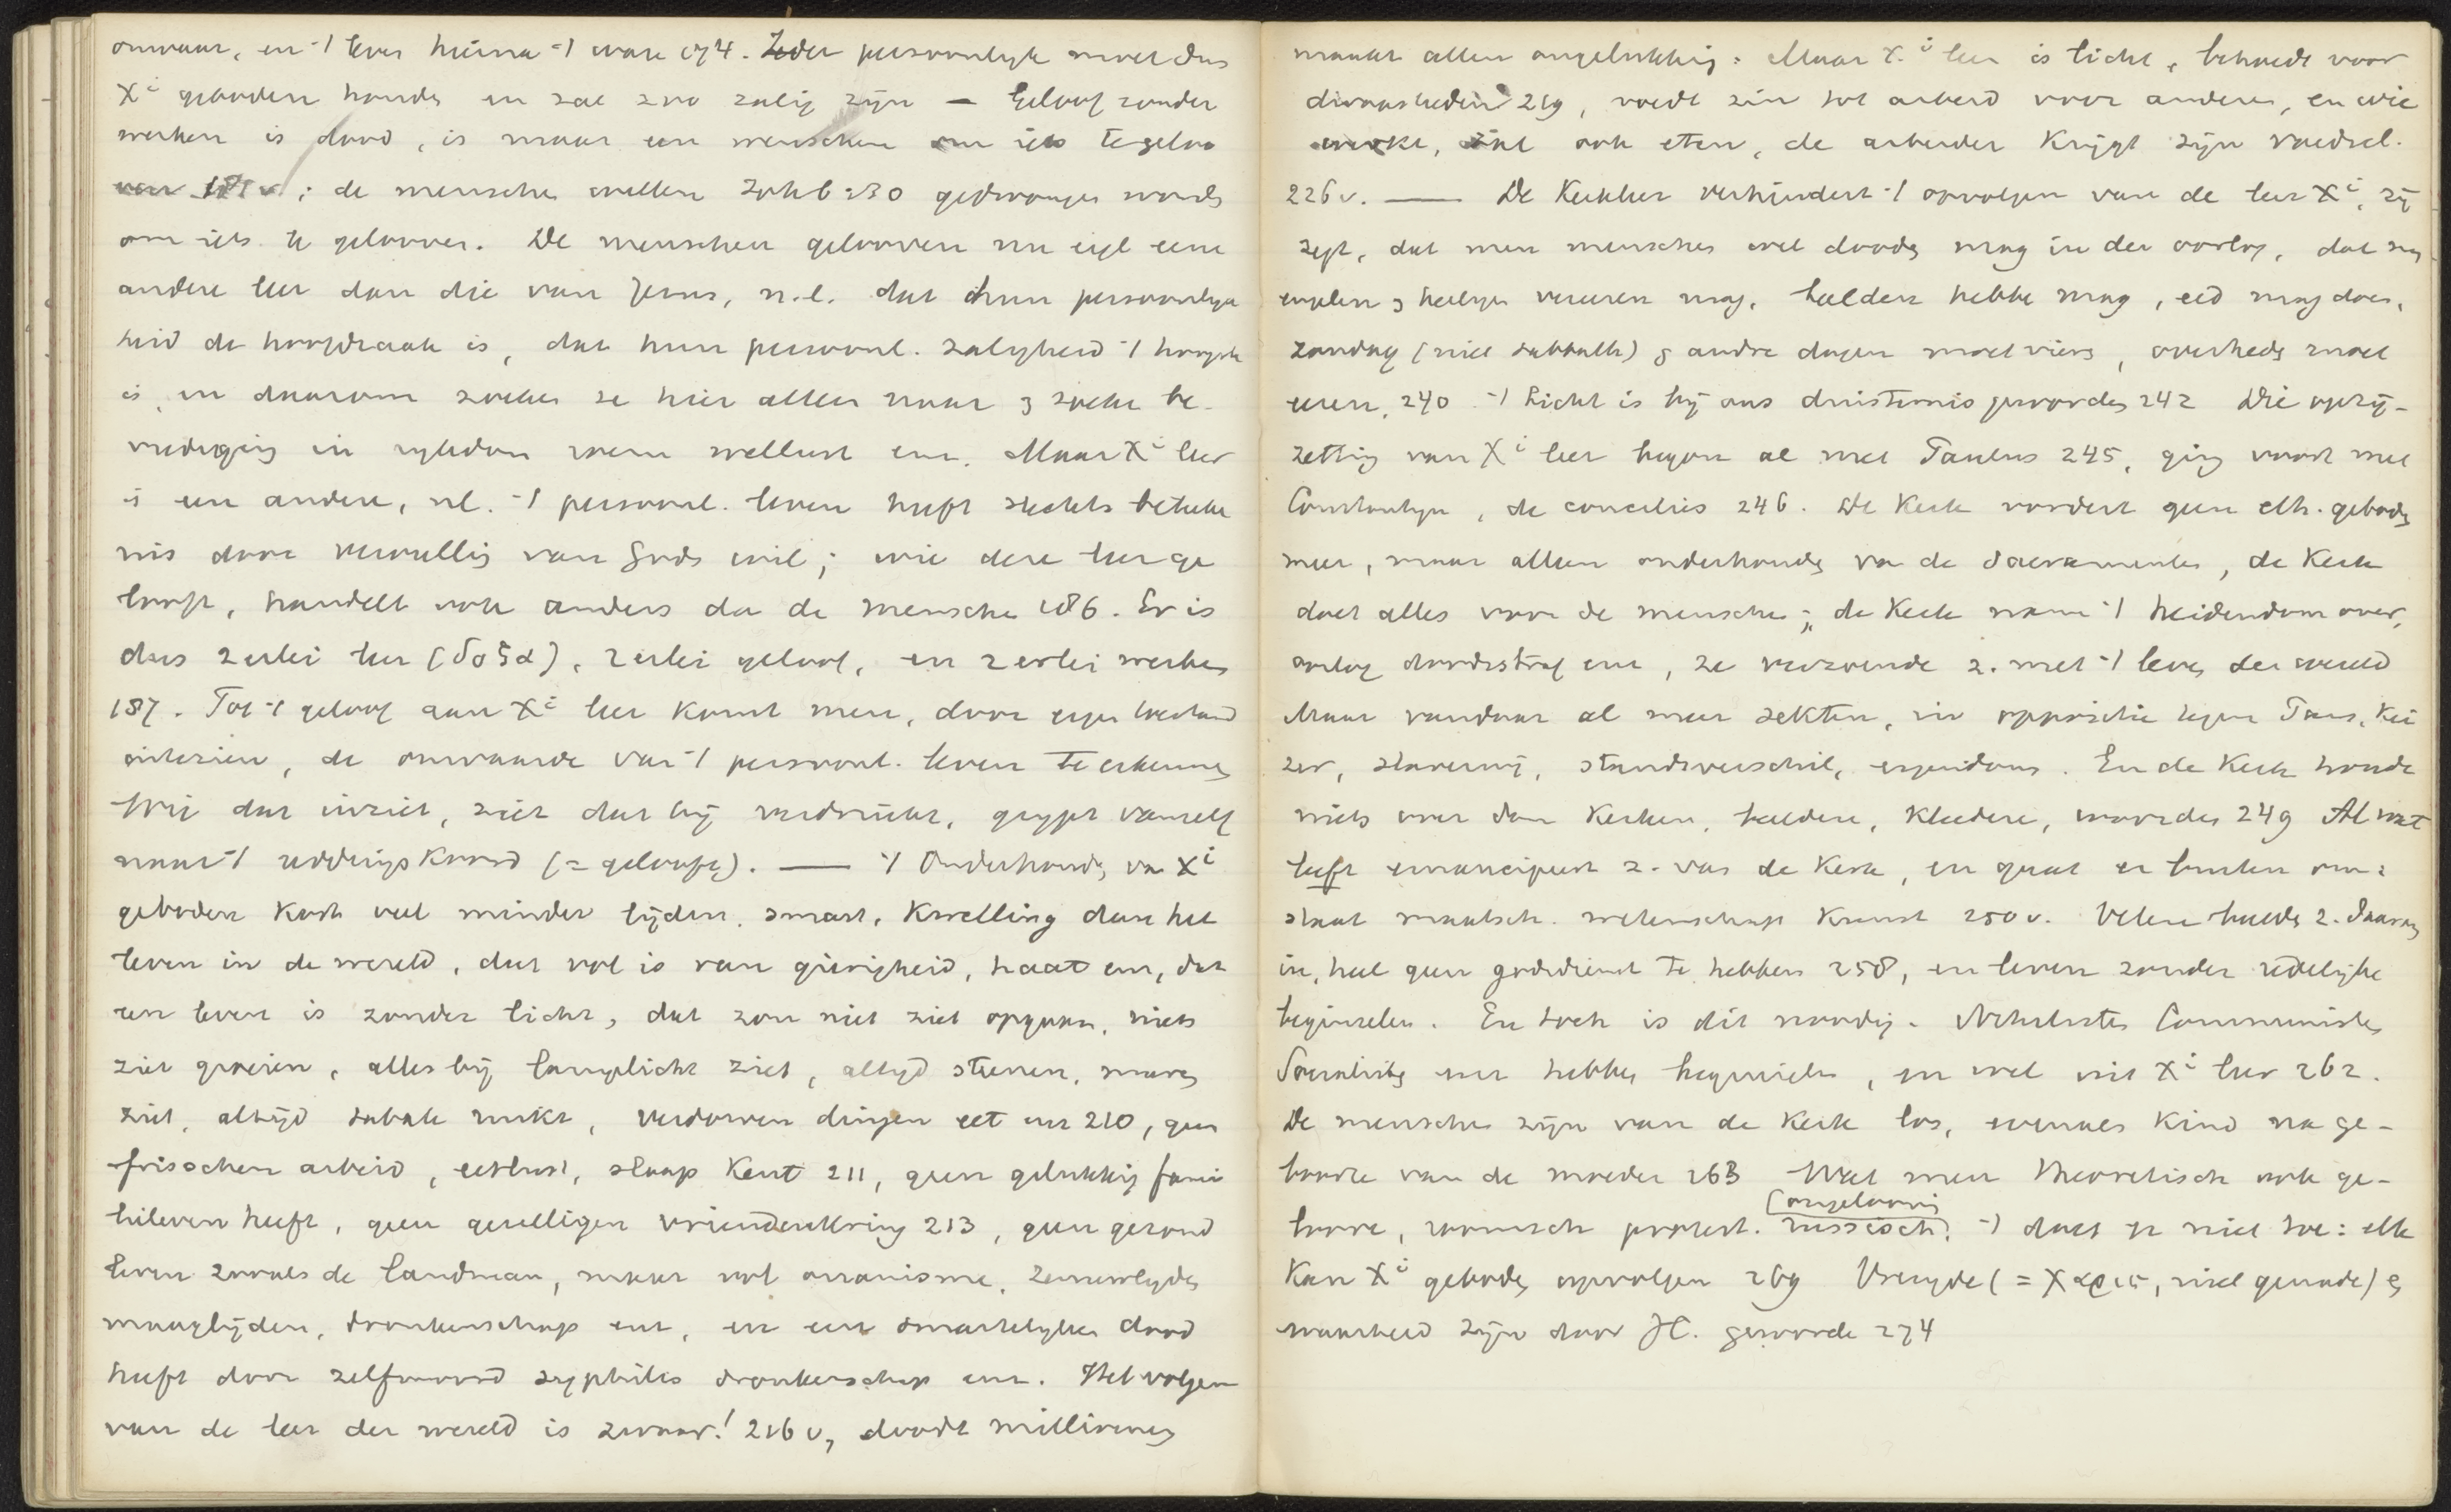 onwaar, en -1 leven hierna -1 ware 174. Ieder persoonlijk moet dus
Xi geboden houden en zal zoo zalig zijn — Geloof zonder
werken is dood, is maar een wenschen om iets te geloo
ven 181 v.; de menschen willen Joh 6:30 gedwongen worden
om iets te gelooven. De menschen gelooven nu eigl eene
andere leer dan die van Jezus, n.l. dat hun persoonlijk
heid de hoofdzaak is, dat hun persoonl. zaligheid -1 hoogste
is, en daarom zoeken ze hier allen naar & zoeken be-
vrediging in rijkdom roem wellust enz. Maar Xi leer
is een andere, nl. -1 persoonl. leven heeft slechts beteeke
nis door vervulling van Gods wil; wie deze leer ge
looft, handelt ook anders dan de menschen 186. Er is
dus 2erlei leer (δοξα), 2erlei geloof, en 2erlei werken
187. Tot -1 geloof aan Xi leer komt men, door eigen toestand
inzien, de onwaarde van -1 persoonl. leven te erkennen
Wie dat inziet, ziet dat hij verdrinkt, grijpt vanzelf
naar -1 reddingskoord (= geloof). — -1 Onderhouden van Xi
geboden kost veel minder lijden, smart, kwelling dan het
leven in de wereld, dat vol is van gierigheid, haat enz, dat
een leven is zonder licht, dat zon niet ziet opgaan, niets
ziet groeien, alles bij lamplicht ziet, altijd steenen, muren
ziet, altijd tabak ruikt, verdorven dingen eet enz 210, geen
frisschen arbeid, eetlust, slaap kent 211, geen gelukkig fami
lieleven heeft, geen gezelligen vriendenkring 213, geen gezond
leven zooals de landman, maar vol onanisme, zenuwlijden
maaglijden, dronkenschap enz, en een smartelijken dood
heeft door zelfmoord syphilis dronkenschap enz. Het volgen
van de leer der wereld is zwaar! 216 v, doodt millioenen
maakt allen ongelukkig: Maar X.i leer is licht, behoedt voor
dwaasheden 219, voedt zin tot arbeid voor anderen, en wie
werkt, zal ook eten, de arbeider krijgt zijn voedsel.
226 v. — De Kerkleer verhindert -1 opvolgen van de leer Xi, zij
zegt, dat men menschen wel dooden mag in den oorlog, dat men
engelen & heiligen vereeren mag, beelden hebben mag, eed mag doen,
zondag (niet sabbath) & andre dagen moet vieren, overheden moet
eeren, 240 -1 Licht is bij ons duisternis geworden 242 Die opzij-
zetting van Xi leer begon al met Paulus 245, ging voort met
Constantijn, de conciliës 246. De Kerk vordert geen eth. geboden
meer, maar alleen onderhouden van de Sacramenten, de Kerk
doet alles voor de menschen; de Kerk nam -1 heidendom over,
oorlog doodstraf enz, ze verzoende z. met -1 leven der wereld
Maar vandaar al meer sekten, in oppositie tegen Paus, Kei
zer, slavernij, standsverschil, eigendom. En de Kerk houdt
niets over dan Kerken, beelden, Kleederen, woorden 249 Al wat
leeft emancipeert z. van de Kerk, en gaat er buiten om:
staat maatsch. wetenschap kunst 250 v. Velen beelden z. daarom
in, heel geen godsdienst te hebben 258, en leven zonder zedelijke
beginselen. En toch is dit noodig. Nihilisten Communisten
Socialisten enz hebben beginselen, en wel uit Xi leer 262.
De menschen zijn van de Kerk los, evenals kind na ge-
boorte van de moeder 263 Wat men theoretisch ook ge-
loove, roomsch protest. russisch, (ongeloovig -1 doet er niet toe: elk
kan Xi geboden opvolgen 269 Vreugde (= χαρις, niet genade) &
waarheid zijn door JC. geworden 274